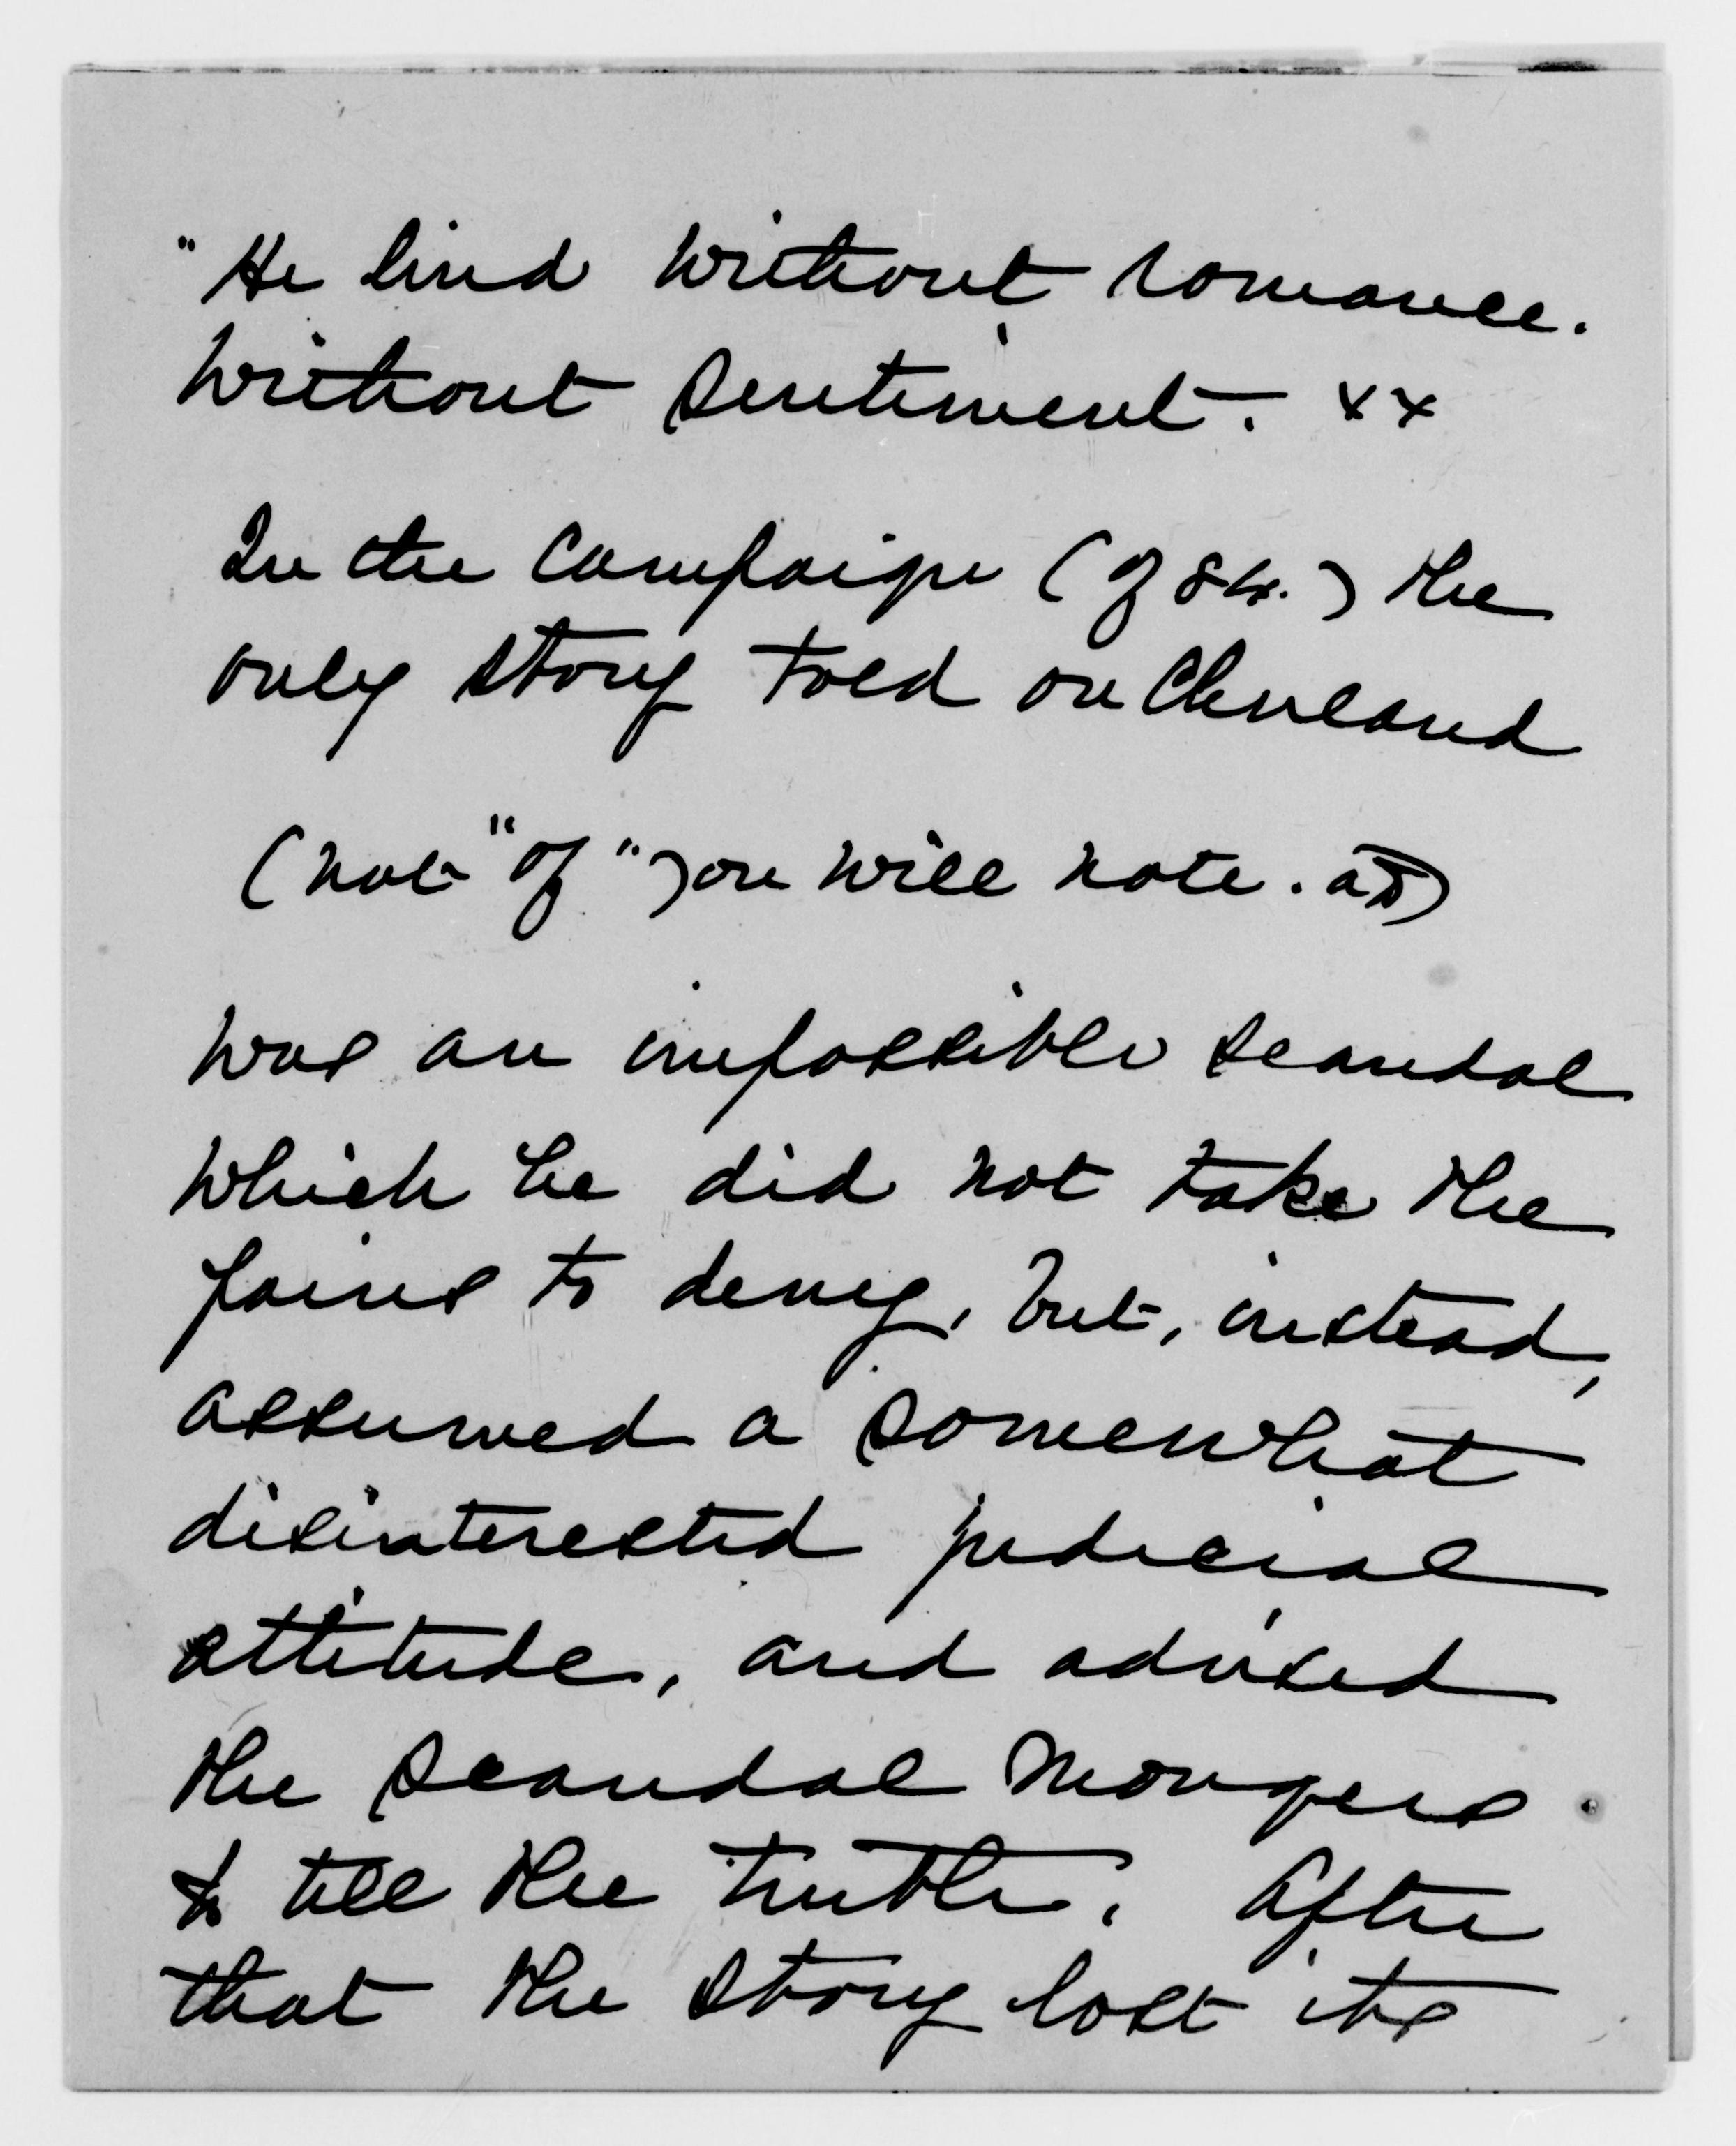 "He lived without romance.
without sentiment. xx
In the campaign (of 84.) the
only story told on Cleveland
(not "of" you will note. AD)
was an impossible scandal
which he did not take the
pains to deny, but, instead,
assumed a somewhat
disinterested judicial
attitude, and advised
the scandal mongers
to tell the truth. After
that the story lost its